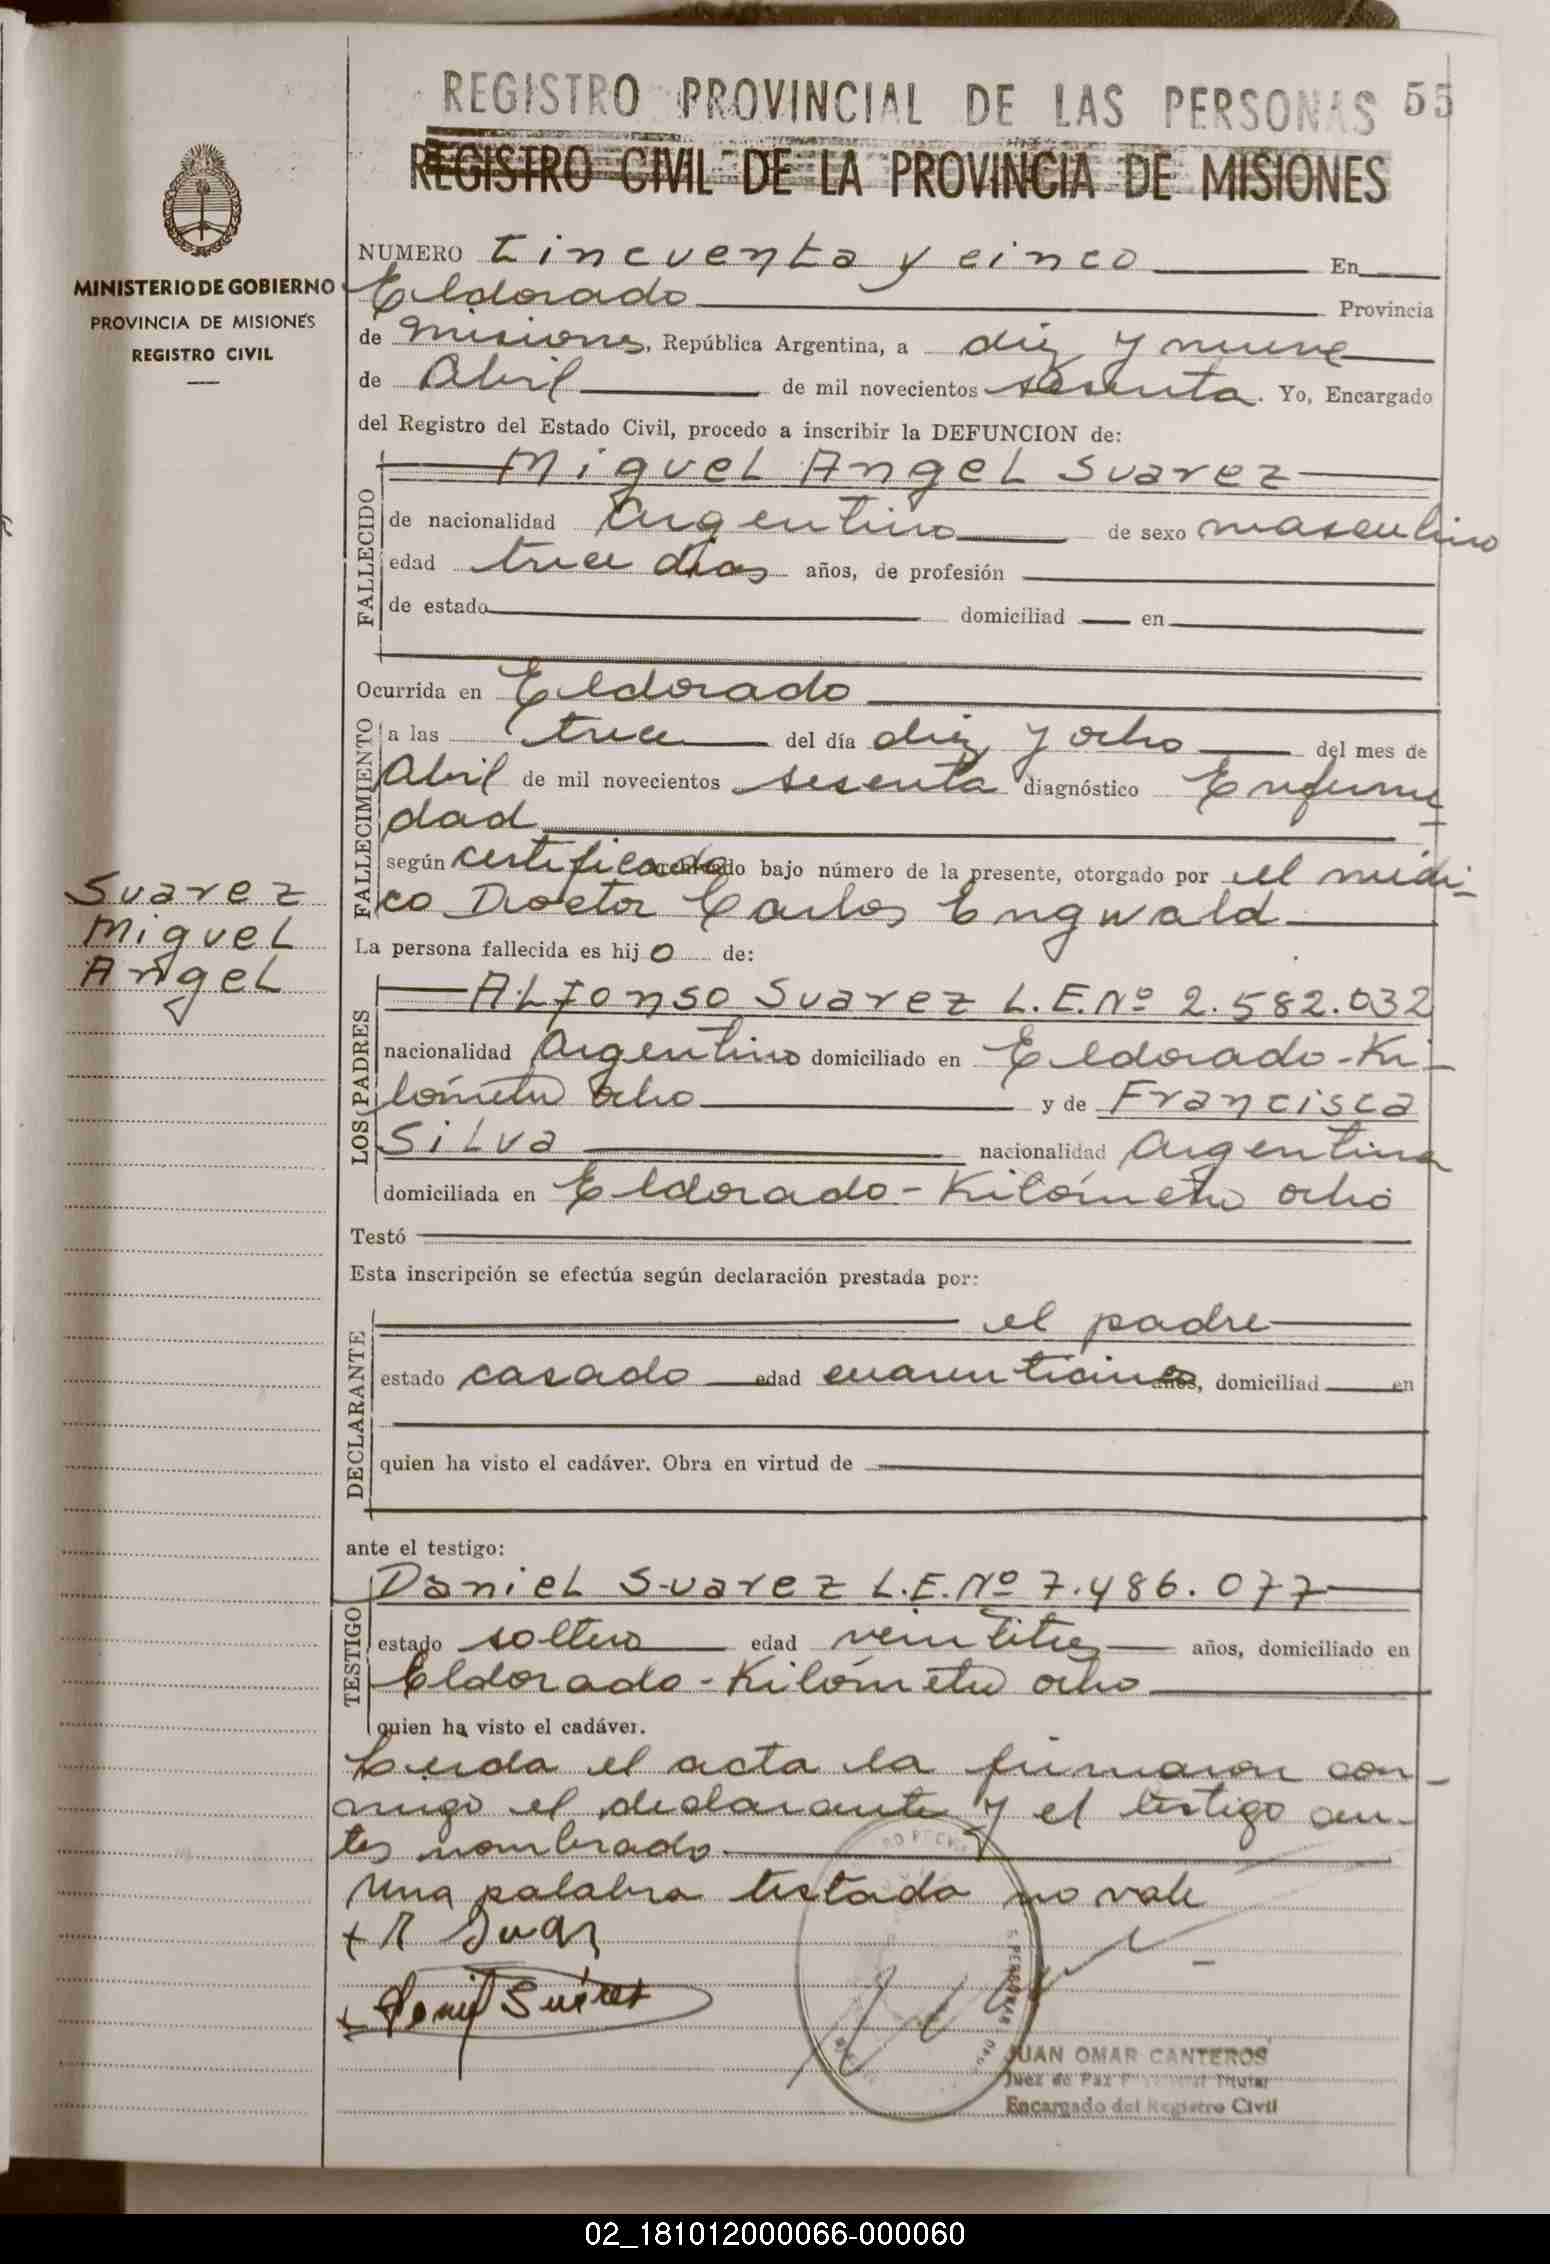 REGISTRO PROVINCIAL DE LAS PERSONAS 55
REGISTRO CIVIL DE LA PROVINCIA DE MISIONES
MINISTERIO DE GOBIERNO
PROVINCIA DE MISIONES
REGISTRO CIVIL
NUMERO Cincuenta y cinco En
Eldorado Provincia
de Misiones, República Argentina, a diez y nueve
de Abril de mil novecientos sesenta. Yo, Encargado
del Registro del Estado Civil, procedo a inscribir la DEFUNCION de:
FALLECIDO
Miguel Angel Suarez
de nacionalidad Argentino de sexo masculino
edad trece dias años, de profesión
de estado domiciliad en
Ocurrida en Eldorado
FALLECIMIENTO
a las trece del día diez y ocho del mes de
Abril de mil novecientos sesenta diagnóstico Enferme
dad
según certificado bajo número de la presente, otorgado por el médi-
co Doctor Carlos Engwald
Suarez
Miguel
Angel
La persona fallecida es hijo de:
LOS PADRES
Alfonso Suarez L.E.Nº 2.582.032
nacionalidad Argentino domiciliado en Eldorado-Ki-
lómetro ocho y de Francisca
Silva nacionalidad Argentina
domiciliada en Eldorado-Kilómetro ocho
Testó
Esta inscripción se efectúa según declaración prestada por:
DECLARANTE
el padre
estado casado edad cuarenticinco años, domiciliad en
quien ha visto el cadáver. Obra en virtud de
ante el testigo:
TESTIGO
Daniel Suarez L.E.Nº 7.486.077
estado soltero edad veintitres años, domiciliado en
Eldorado-Kilómetro ocho
quien ha visto el cadáver.
Leida el acta la firmaron con-
migo el declarante y el testigo an-
tes nombrado.
Una palabra testada no vale
Suarez
JUAN OMAR CANTEROS
Juez de Paz Titular
Encargado del Registro Civil
02_181012000066-000060